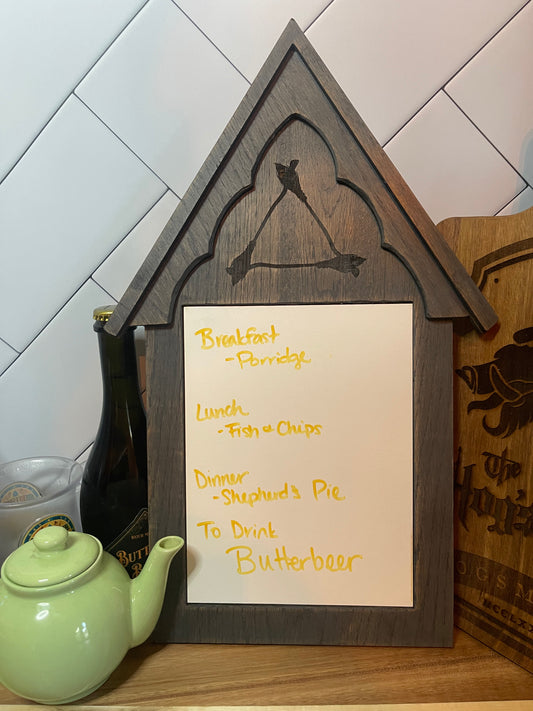 Breakfast
- Porridge
Lunch
- Fish & Chips
Dinner
- Shepherd's Pie
To Drink
Butterbeer
The
Hog's